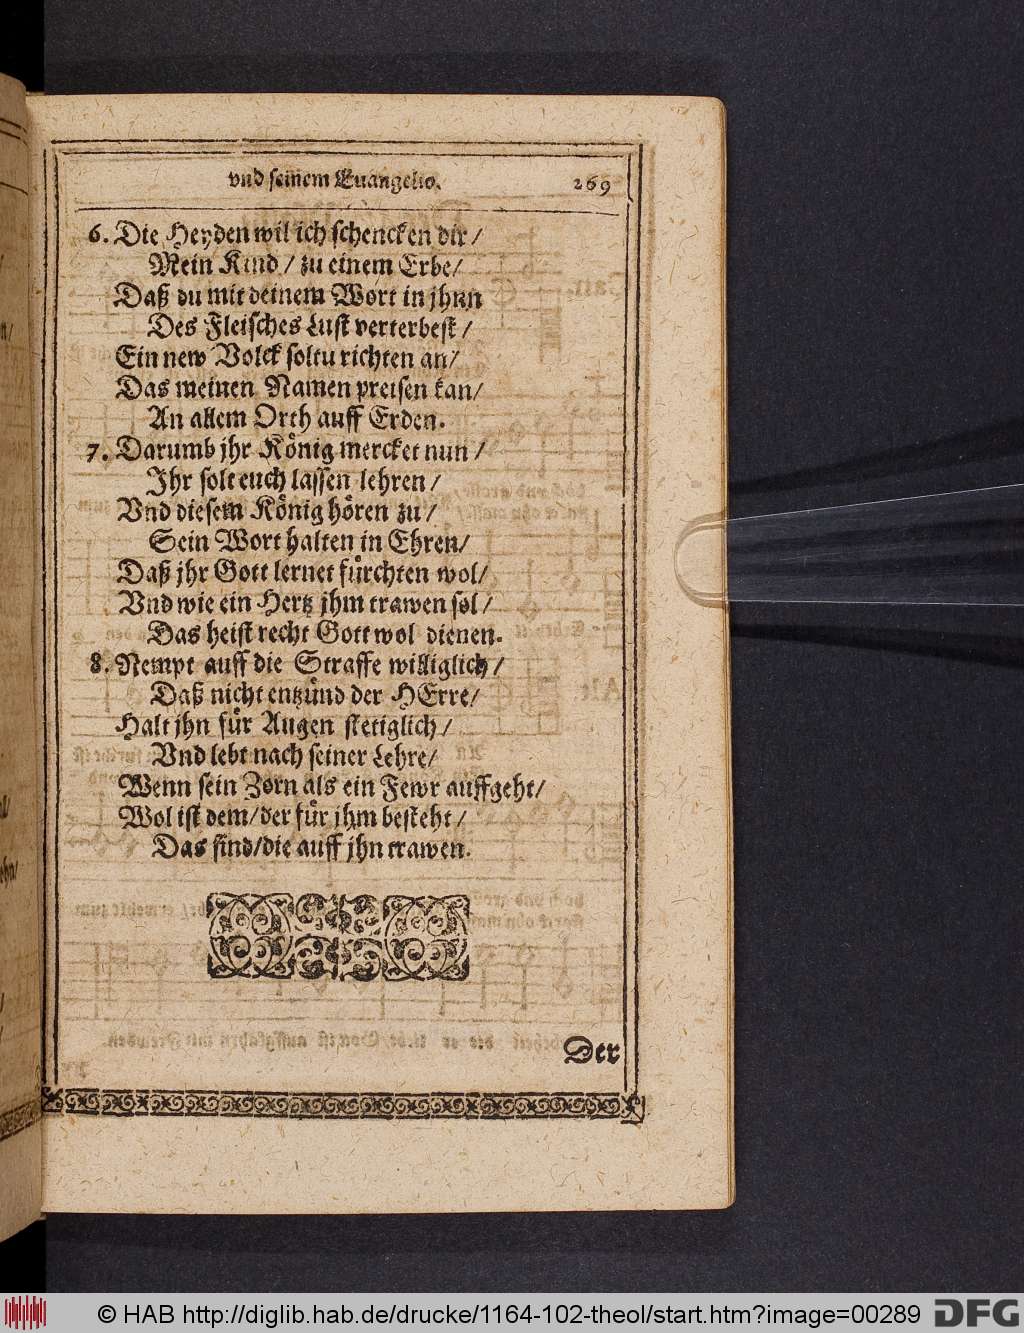 vnd seinem Euangelio. 269
6. Die Heyden wil ich schencken dir /
Mein Kind / zu einem Erbe /
Daß du mit deinem Wort in jhnn
Des Fleisches Lust verterbest /
Ein new Volck soltu richten an /
Das meinen Namen preisen kan /
An allem Orth auff Erden.
7. Darumb jhr König mercket nun /
Jhr solt euch lassen lehren /
Vnd diesem König hören zu /
Sein Wort halten in Ehren /
Daß jhr Gott lernet fürchten wol /
Vnd wie ein Hertz jhm trawen sol /
Das heist recht Gott wol dienen.
8. Nempt auff die Straffe williglich /
Daß nicht entzünd der HErre /
Halt jhn für Augen stetiglich /
Vnd lebt nach seiner Lehre /
Wenn sein Zorn als ein Fewr auffgeht /
Wol ist dem / der für jhm besteht /
Das sind / die auff jhn trawen.
Der
© HAB http://diglib.hab.de/drucke/1164-102-theol/start.htm?image=00289 DFG